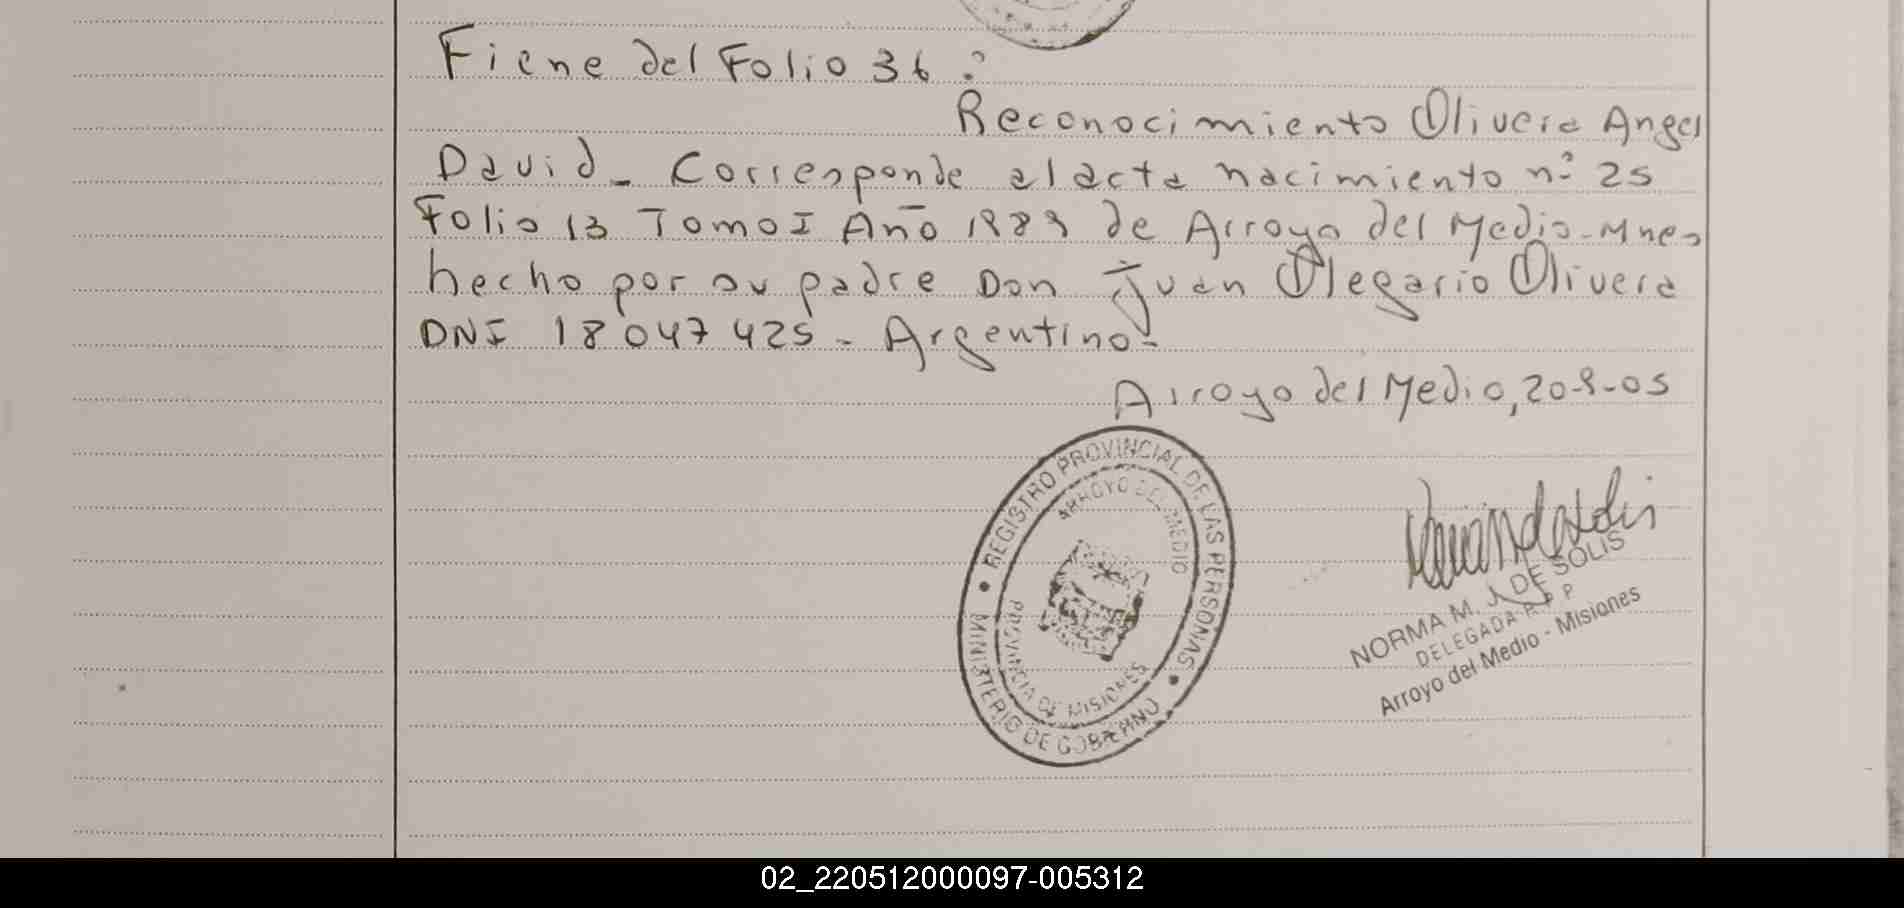 Fiene del Folio 36:
Reconocimiento Olivera Angel
David_ Corresponde al acta nacimiento nº 25
Folio 13 Tomo I Año 1989 de Arroyo del Medio-Mnes
hecho por su padre Don Juan Olegario Olivera
DNI 18047425 - Argentino-
Arroyo del Medio, 20-9-05
REGISTRO PROVINCIAL DE LAS PERSONAS
MINISTERIO DE GOBIERNO
ARROYO DEL MEDIO
PROVINCIA DE MISIONES
NORMA M. J. DE SOLIS
DELEGADA R P P
Arroyo del Medio - Misiones
02_220512000097-005312